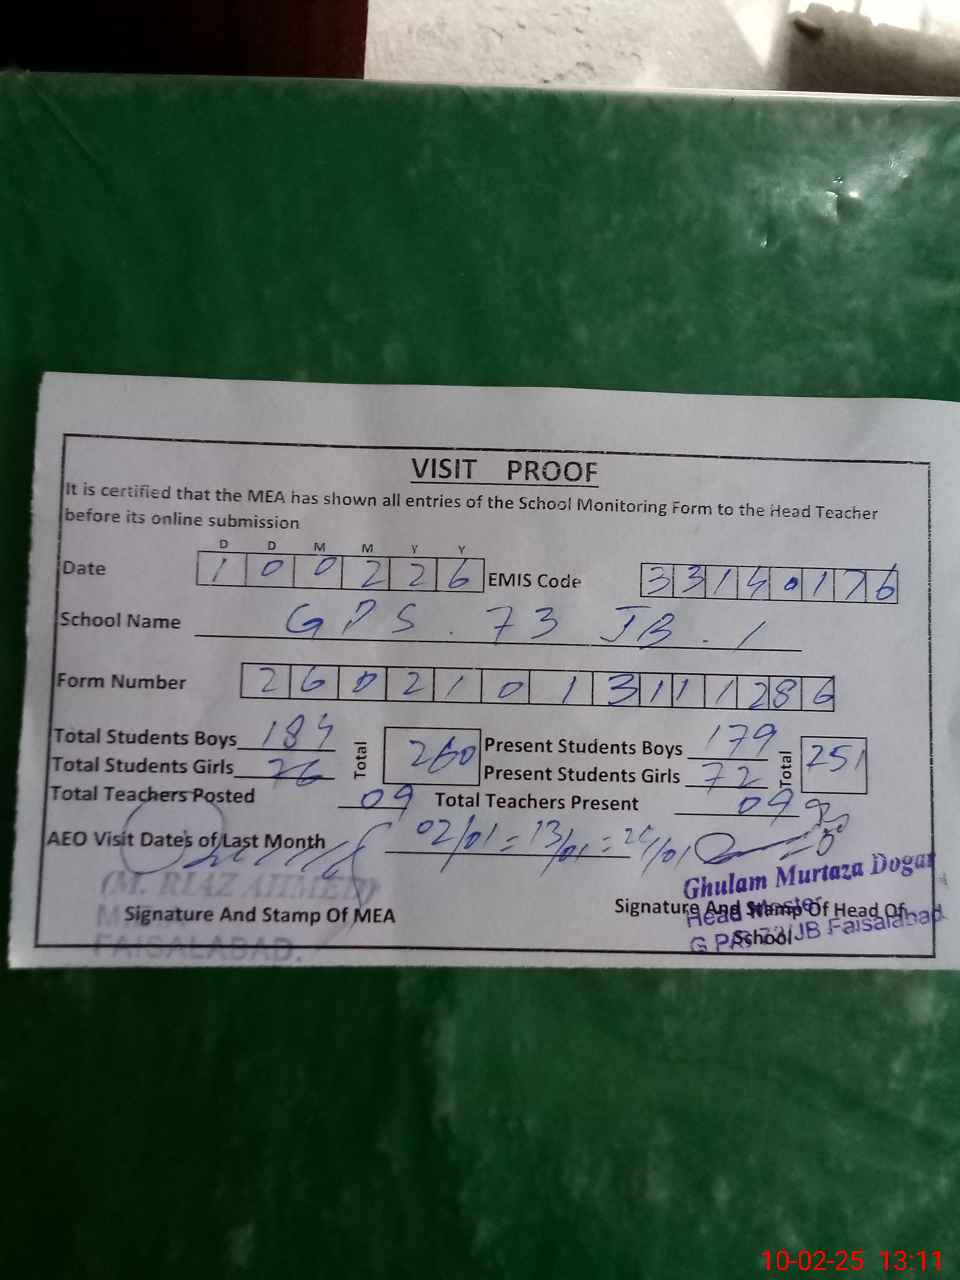 VISIT PROOF
It is certified that the MEA has shown all entries of the School Monitoring Form to the Head Teacher
before its online submission
D D M M Y Y
Date 1 0 0 2 2 6 EMIS Code 3 3 1 4 0 1 7 6
School Name GPS. 73 JB. 1
Form Number 2 6 0 2 1 0 1 3 1 1 1 2 8 6
Total Students Boys 184 Total 260 Present Students Boys 179 Total 251
Total Students Girls 76 Present Students Girls 72
Total Teachers Posted 09 Total Teachers Present 09
AEO Visit Dates of Last Month 02/01 = 13/01 =
(M. RIAZ AHMED) Ghulam Murtaza Dogar
Signature And Stamp Of MEA Signature And Stamp Of Head Of
Head Master
School
FAISALABAD. G P 73/JB Faisalabad
10-02-25 13:11